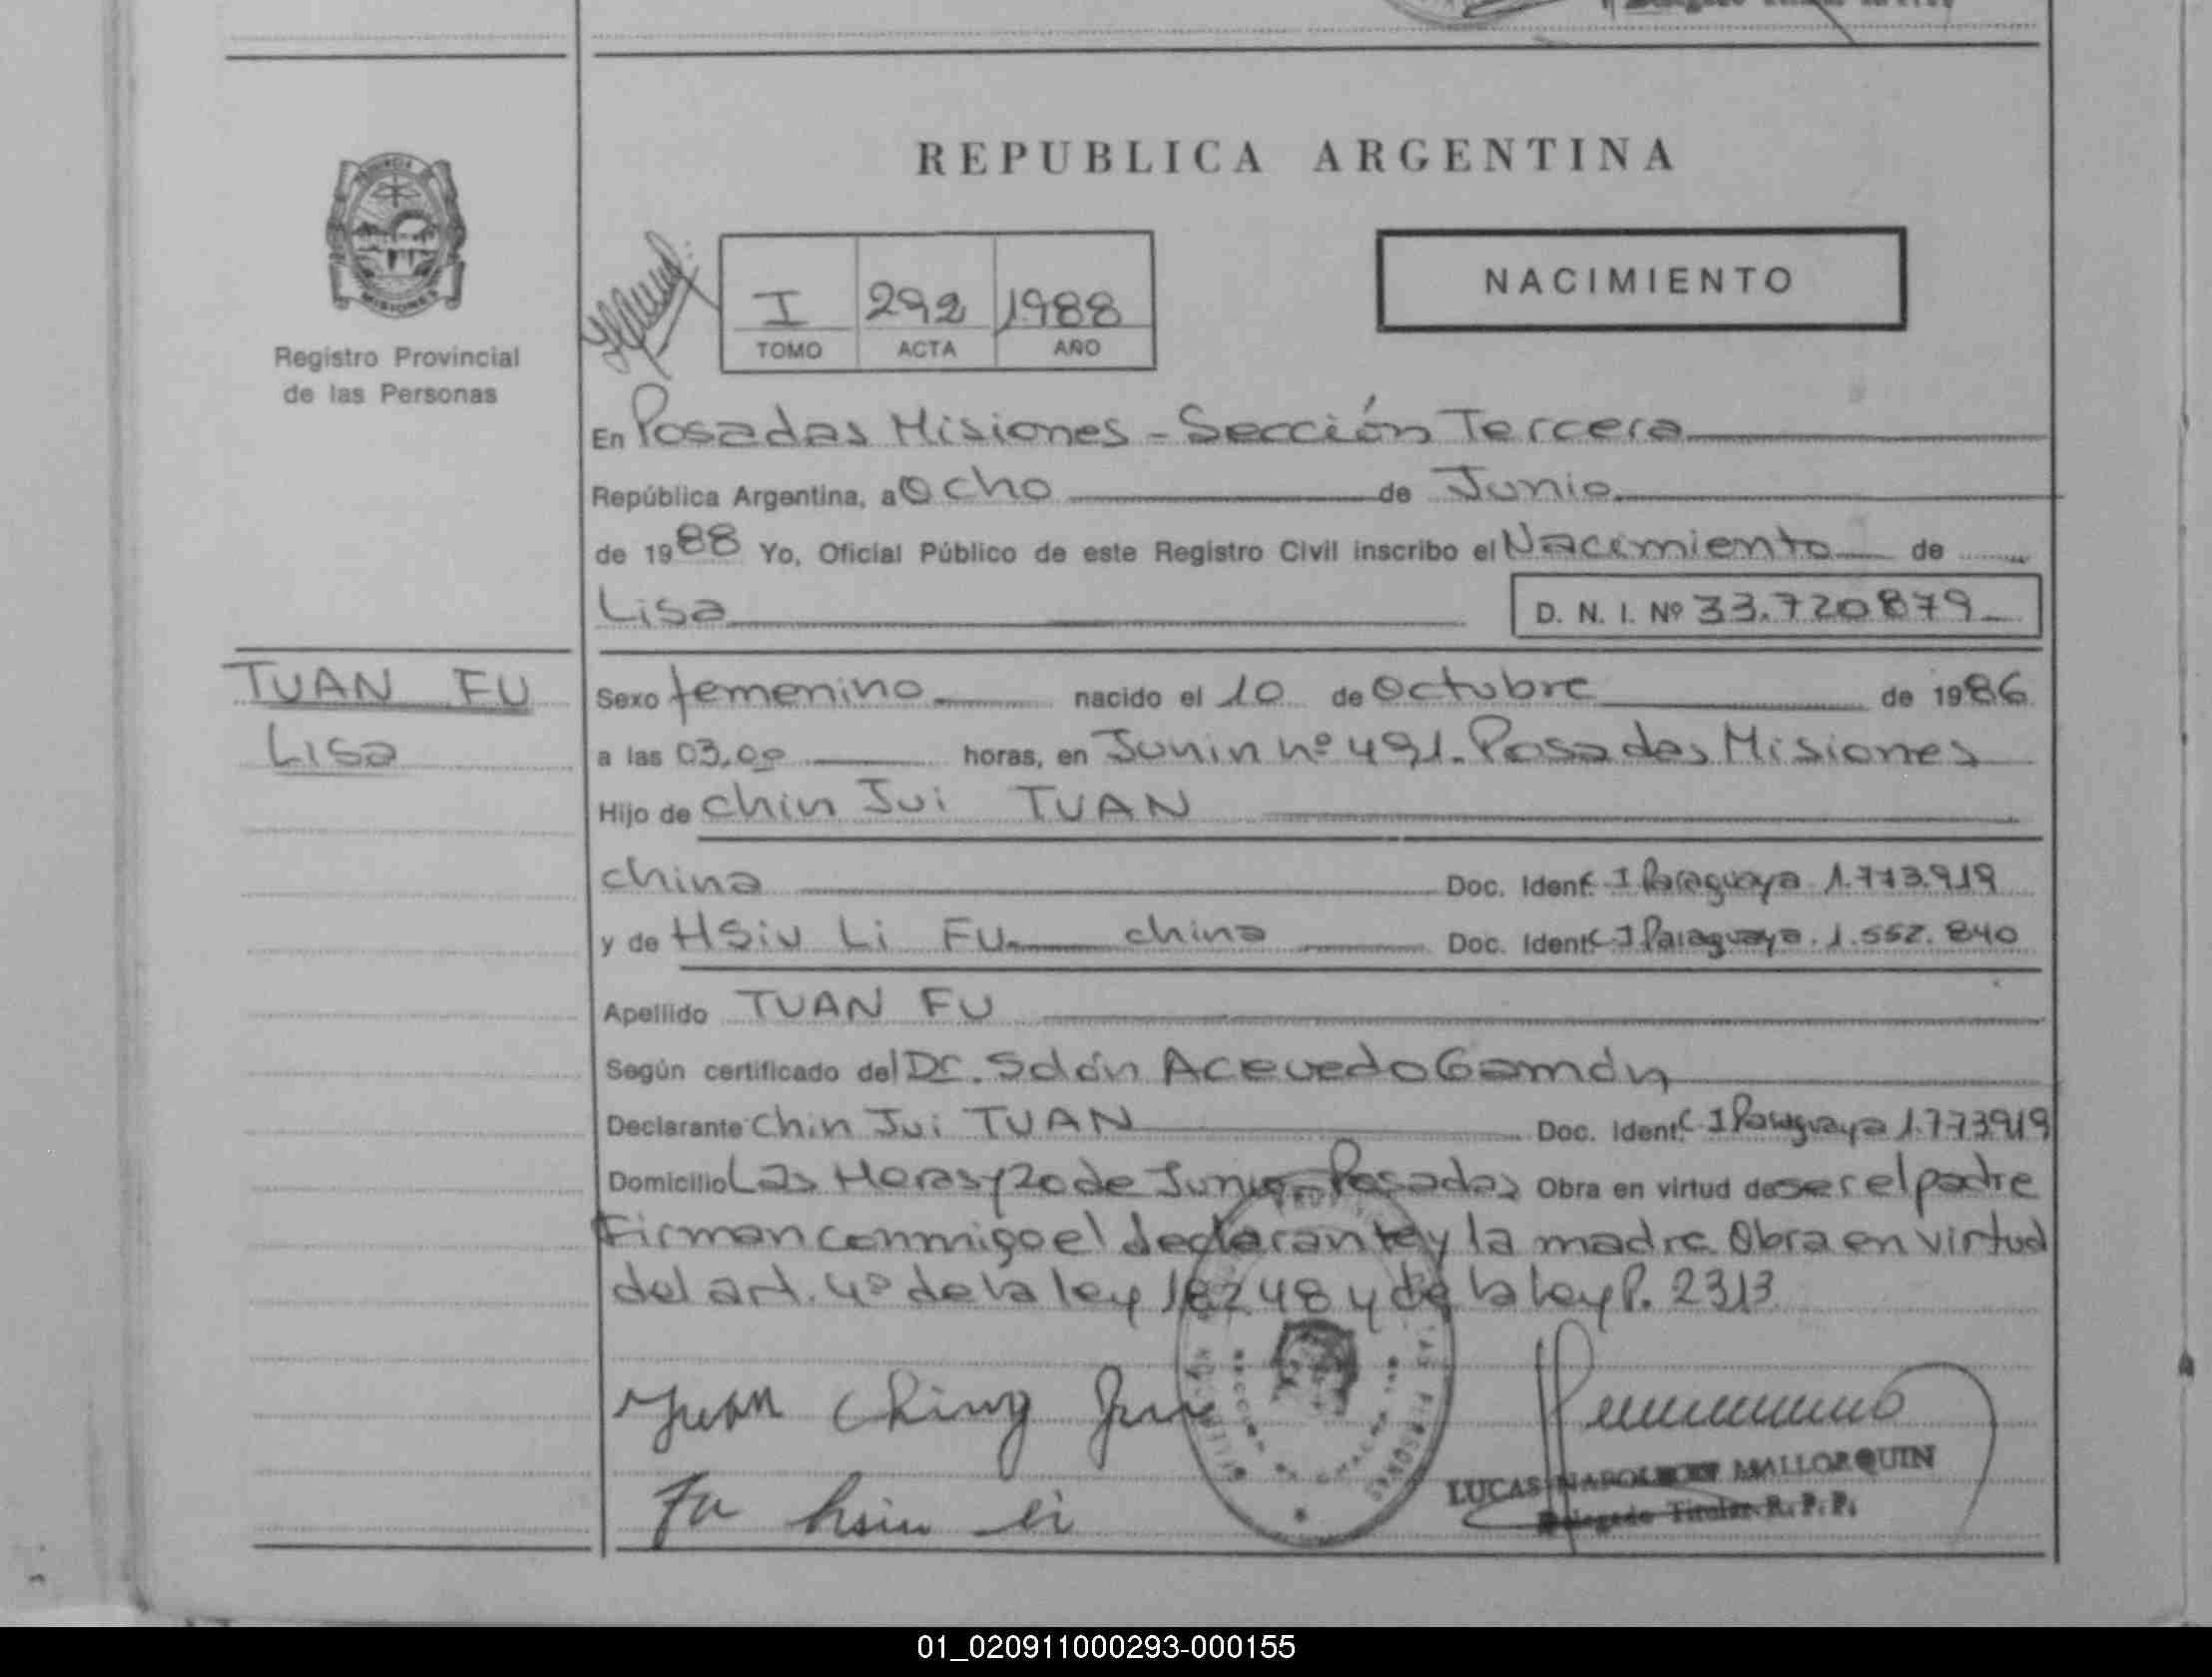 REPUBLICA ARGENTINA
NACIMIENTO
MISIONES
Registro Provincial
de las Personas
I 292 1988
TOMO ACTA AÑO
En Posadas Misiones - Sección Tercera
República Argentina, a Ocho de Junio
de 1988 Yo, Oficial Público de este Registro Civil inscribo el Nacimiento de
Lisa D. N. I. Nº 33.720.879
TUAN FU
Lisa
Sexo femenino nacido el 10 de Octubre de 1986
a las 03,00 horas, en Junin nº 491. Posadas Misiones
Hijo de Chin Jui TUAN
china Doc. Ident. C I Paraguaya 1.773.919
y de HSiu Li FU china Doc. Ident. C I Paraguaya. 1.552.840
Apellido TUAN FU
Según certificado del Dr. Solón Acevedo Gamón
Declarante Chin Jui TUAN Doc. Ident. C I Paraguaya 1.773919
Domicilio Las Heras y 20 de Junio - Posadas Obra en virtud de ser el padre
Firman conmigo el declarante y la madre. Obra en virtud
del art. 4º de la ley 18248 y de la ley P. 2313
Ching
Fu hsiu li
LUCAS NAPOLEON MALLORQUIN
Delegado Titular R. P. P.
01_020911000293-000155